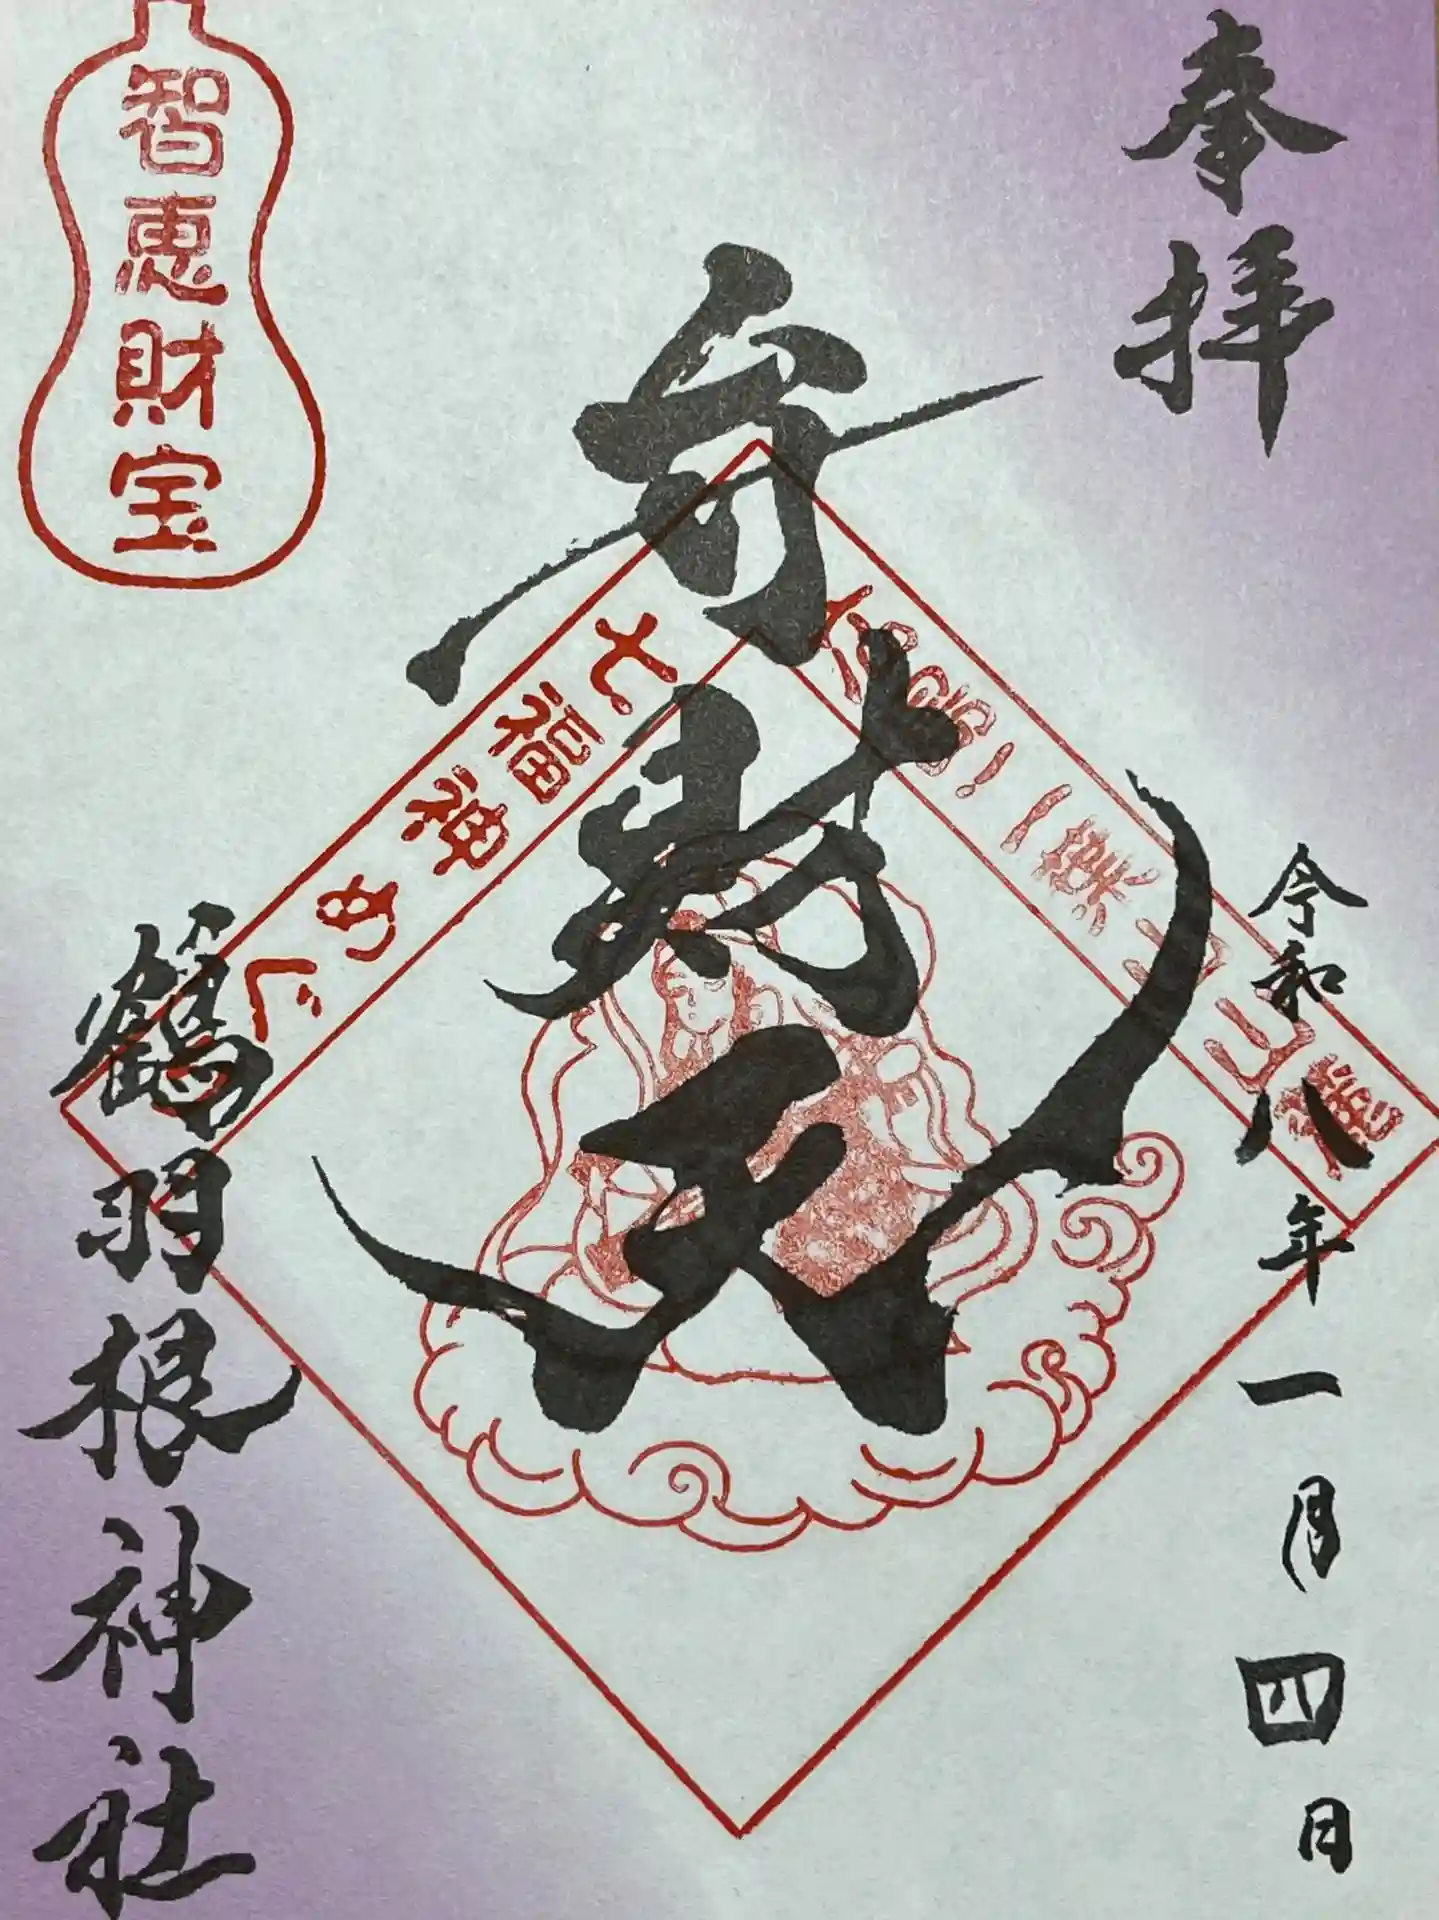 奉拝
令和八年一月四日
弁財天
七福神めぐ
智恵財宝
鶴羽根神社